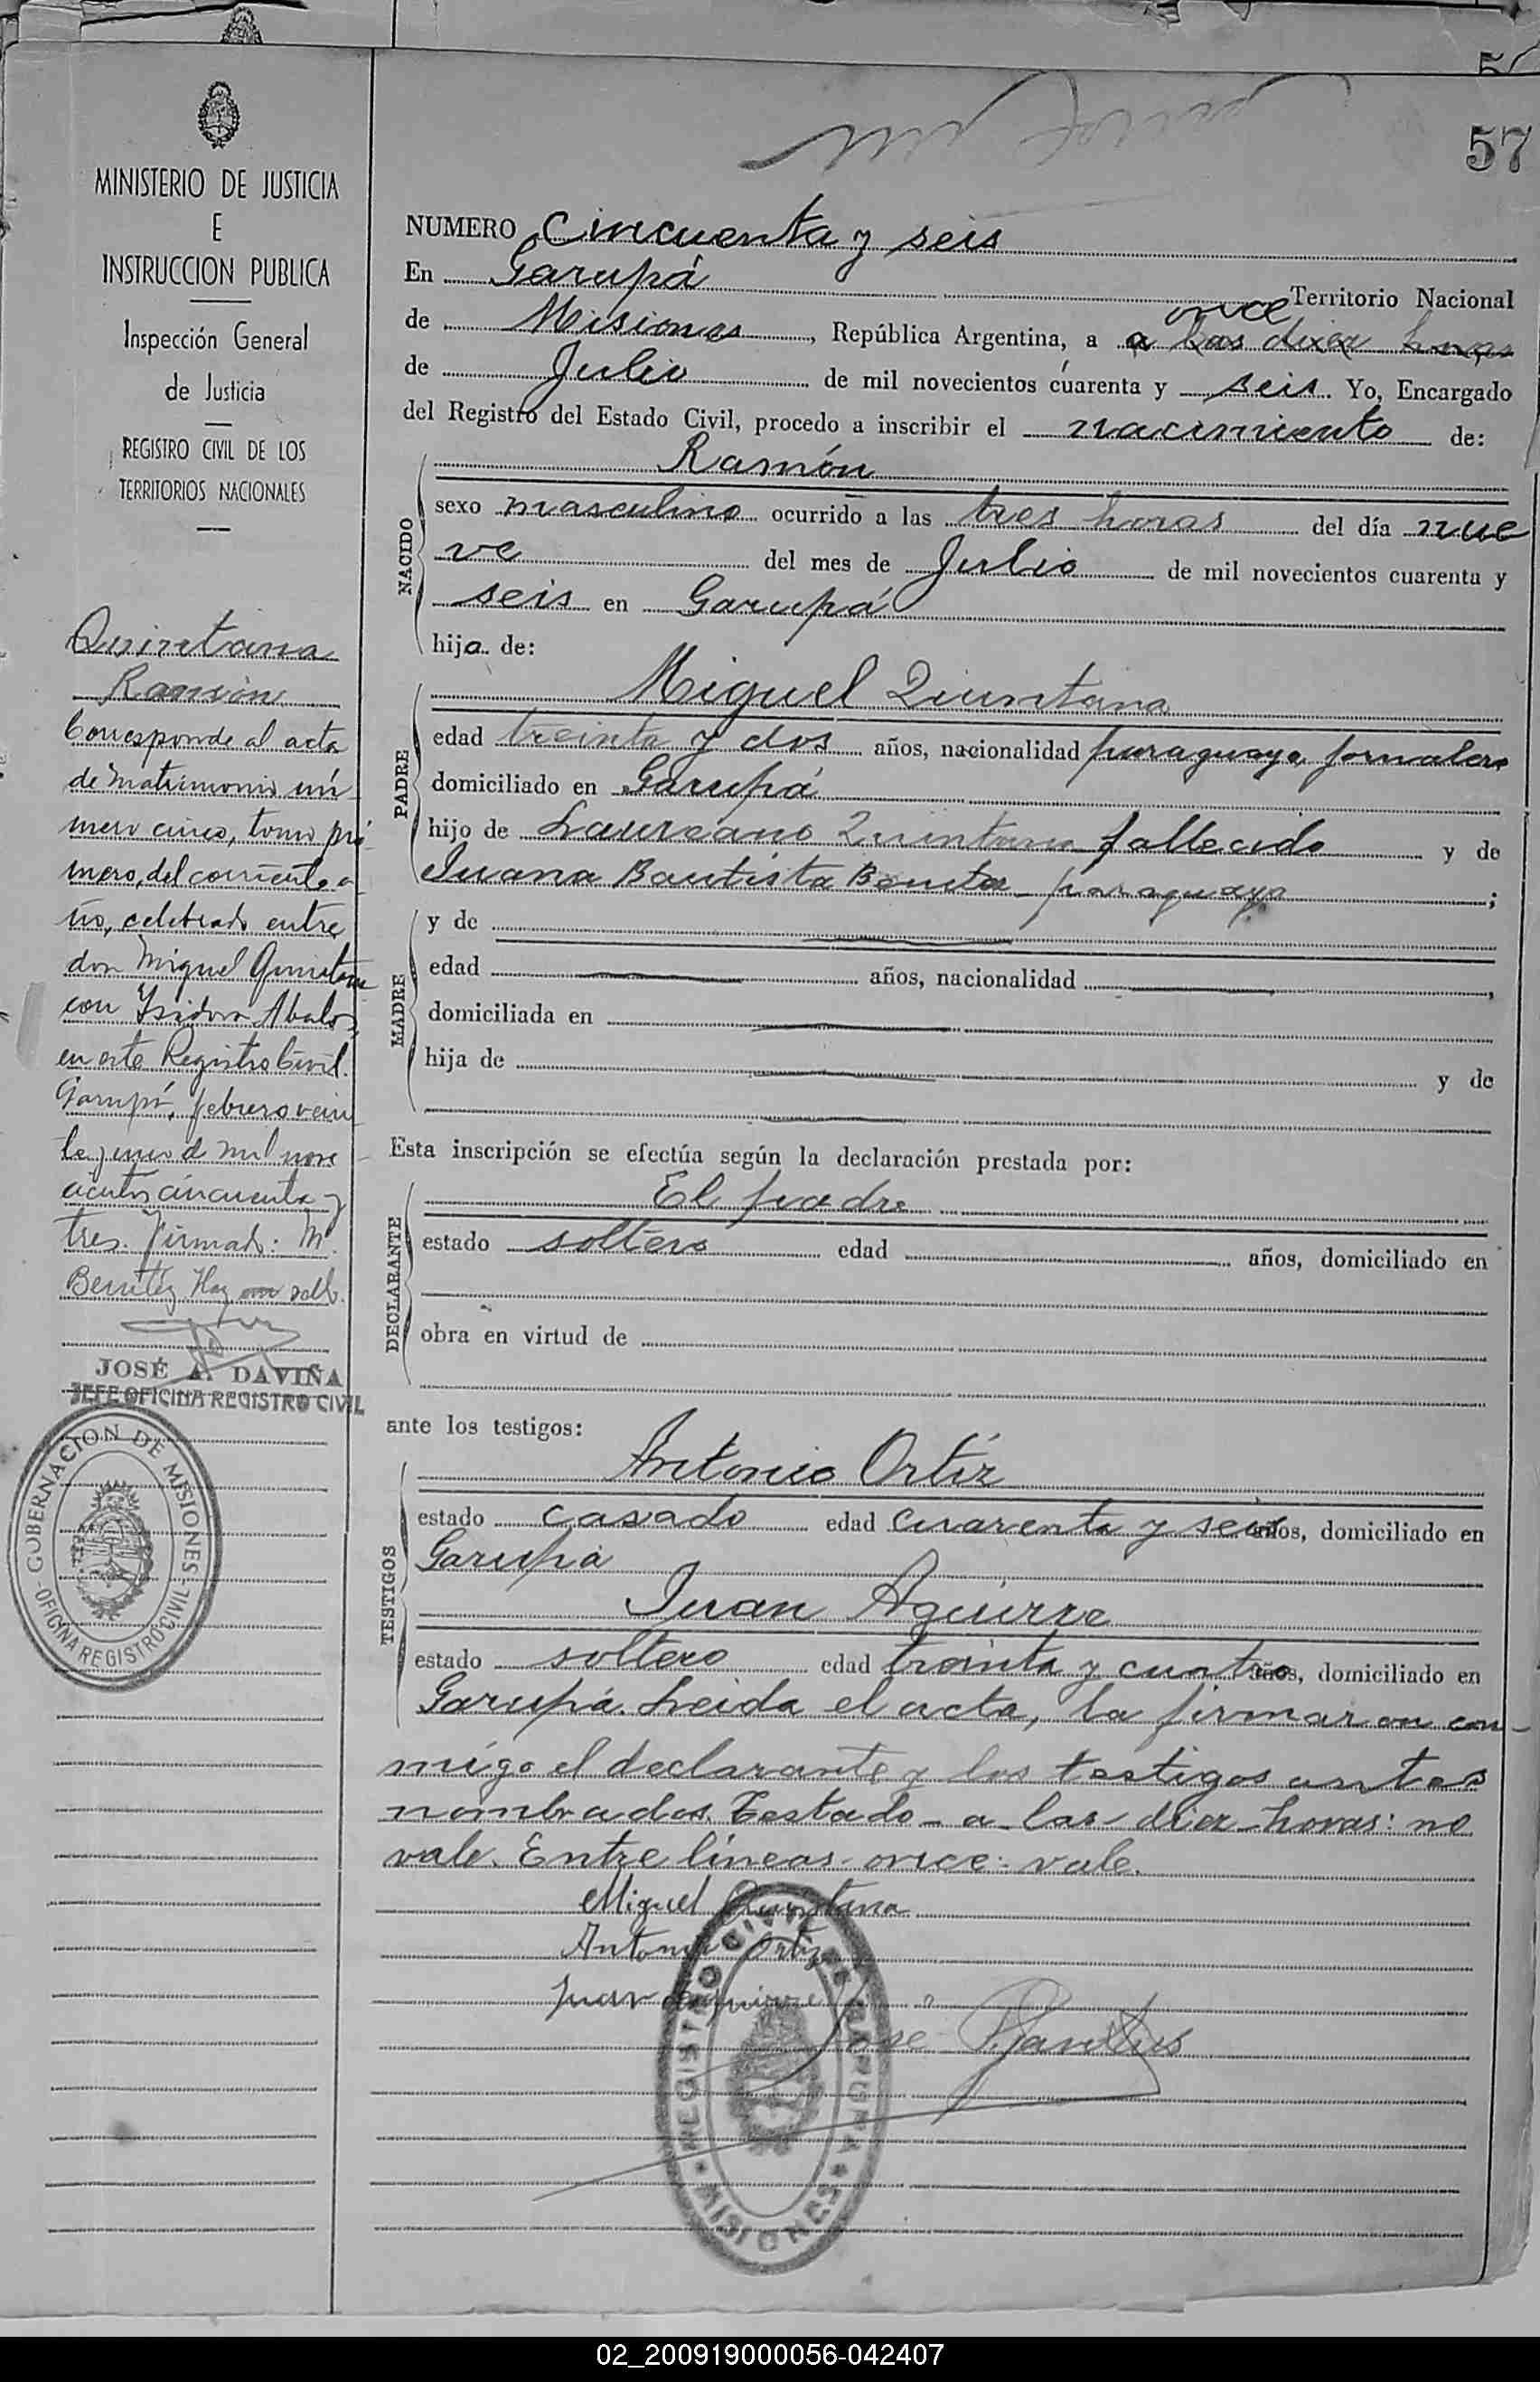 57
MINISTERIO DE JUSTICIA
E
INSTRUCCION PUBLICA
Inspección General
de Justicia
REGISTRO CIVIL DE LOS
TERRITORIOS NACIONALES
Quintana
Ramón
Corresponde al acta
de matrimonio nú
mero cinco, tomo pri
mero, del corriente a
ño, celebrado entre
don Miguel Quintana
con Isidora Abalos,
en este Registro Civil.
Garupá, febrero vein
te y uno de mil nove
cientos cincuenta y
tres. Firmado: M.
Benítez Hay un sello.
JOSÉ A. DAVIÑA
JEFE OFICINA REGISTRO CIVIL
GOBERNACION DE MISIONES - OFICINA REGISTRO CIVIL -
NUMERO Cincuenta y seis
En Garupá Territorio Nacional
once
de Misiones, República Argentina, a a las diez horas
de Julio de mil novecientos cuarenta y seis. Yo, Encargado
del Registro del Estado Civil, procedo a inscribir el nacimiento de:
NACIDO
Ramón
sexo masculino ocurrido a las tres horas del día nue
ve del mes de Julio de mil novecientos cuarenta y
seis en Garupá
hijo de:
PADRE
Miguel Quintana
edad treinta y dos años, nacionalidad paraguaya jornalero
domiciliado en Garupá
hijo de Laureano Quintana fallecido y de
Juana Bautista Benitez paraguaya ;
MADRE
y de
edad años, nacionalidad ,
domiciliada en
hija de y de
Esta inscripción se efectúa según la declaración prestada por:
DECLARANTE
El padre
estado soltero edad años, domiciliado en
obra en virtud de
ante los testigos:
TESTIGOS
Antonio Ortíz
estado casado edad cuarenta y seis años, domiciliado en
Garupá
Juan Aguirre
estado soltero edad treinta y cuatro años, domiciliado en
Garupá. Leida el acta, la firmaron con-
migo el declarante y los testigos antes
nombrados. Testado - a las diez horas: no
vale. Entre líneas - once: vale.
Miguel Quintana
Antonio Ortiz
Juan Aguirre
José
REGISTRO CIVIL
MISIONES
02_200919000056-042407